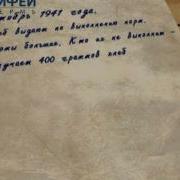 ИФЕЙ
тябрь 1941 года.
еб выдают по выполнению норм.
рмы большие. Кто их не выполнит -
лучаем 400 граммов хлеб